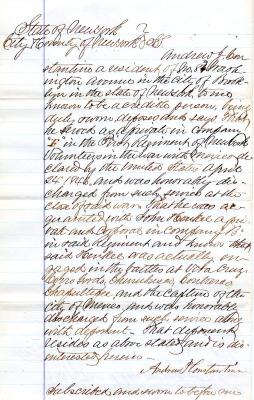 State of New York
City & County of New York SS.
Andrew J. Con
stantine a resident of No. 5
ington avenue in the City of Brook
lyn in the State of New York, to me
known to be a credible person, being
duly sworn deposes and says that
he served as a private in Company
in the First Regiment of New York
Volunteers in the War with Mexico de
clared by the United States April
24th 1846, and was honorably dis
charged from such service at the
close of said war. That he was ac
quainted with John Henkee a pri
vate and Corporal in Company
in said Regiment and knows that
said Henkee was actually en
gaged in the battles at Vera Cruz,
Cerro Gordo, Churubusco, Contreras
Chapultepec and the Capture of the
City of Mexico, and was honorably
discharged from such service along
with deponent. That deponent
resides as above stated and is dis
interested herein.
Andrew J Constantine
Subscribed and sworn to before me